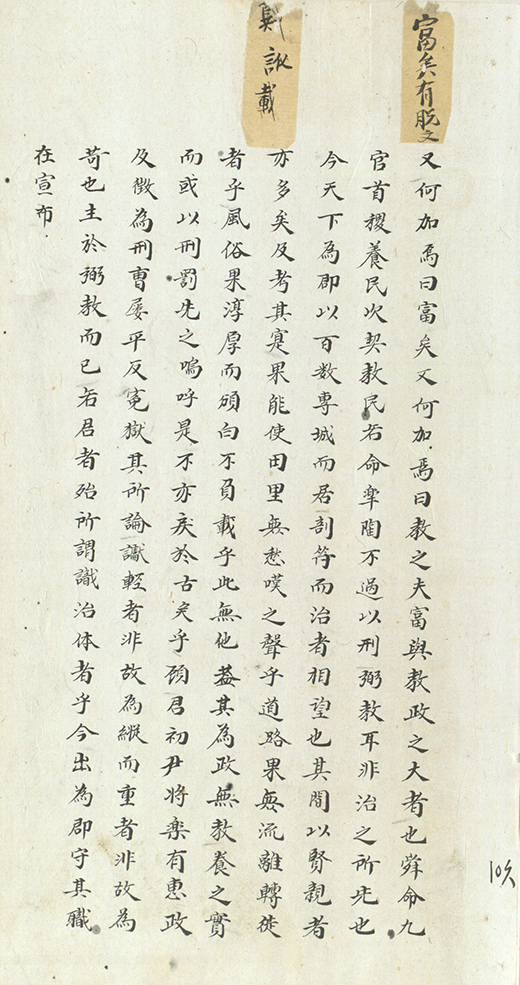 富矣有脫文
又何加焉曰富矣又何加焉曰教之夫富與教政之大者也舜命九
官首稷養民次契教民若命皋陶不過以刑弼教耳非治之所先也
今天下為郡以百數專城而居剖符而治者相望也其間以賢親者
亦多矣及考其寔果能使田里無愁嘆之聲乎道路果無流離轉徙
者乎風俗果淳厚而頒白不負載乎此無他葢其為政無教養之實
而或以刑罰先之嗚呼是不亦戾於古矣乎顧君初尹將樂有惠政
及徵為刑曹屡平反寃獄其所論讞輕者非故為縱而重者非故為
苛也主於弼教而已若君者殆所謂識治体者乎今出為郡守其職
在宣布
訛載